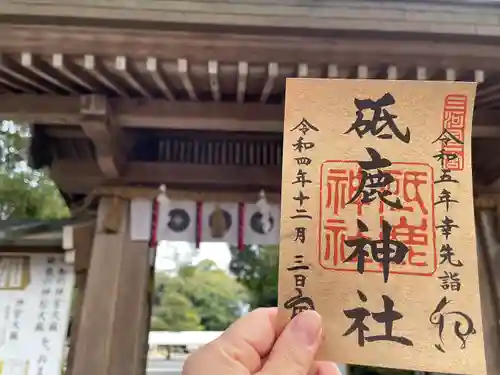 三河國一宮
令和五年幸先詣
砥鹿神社
砥鹿神社
令和四年十二月三日
神宮大麻